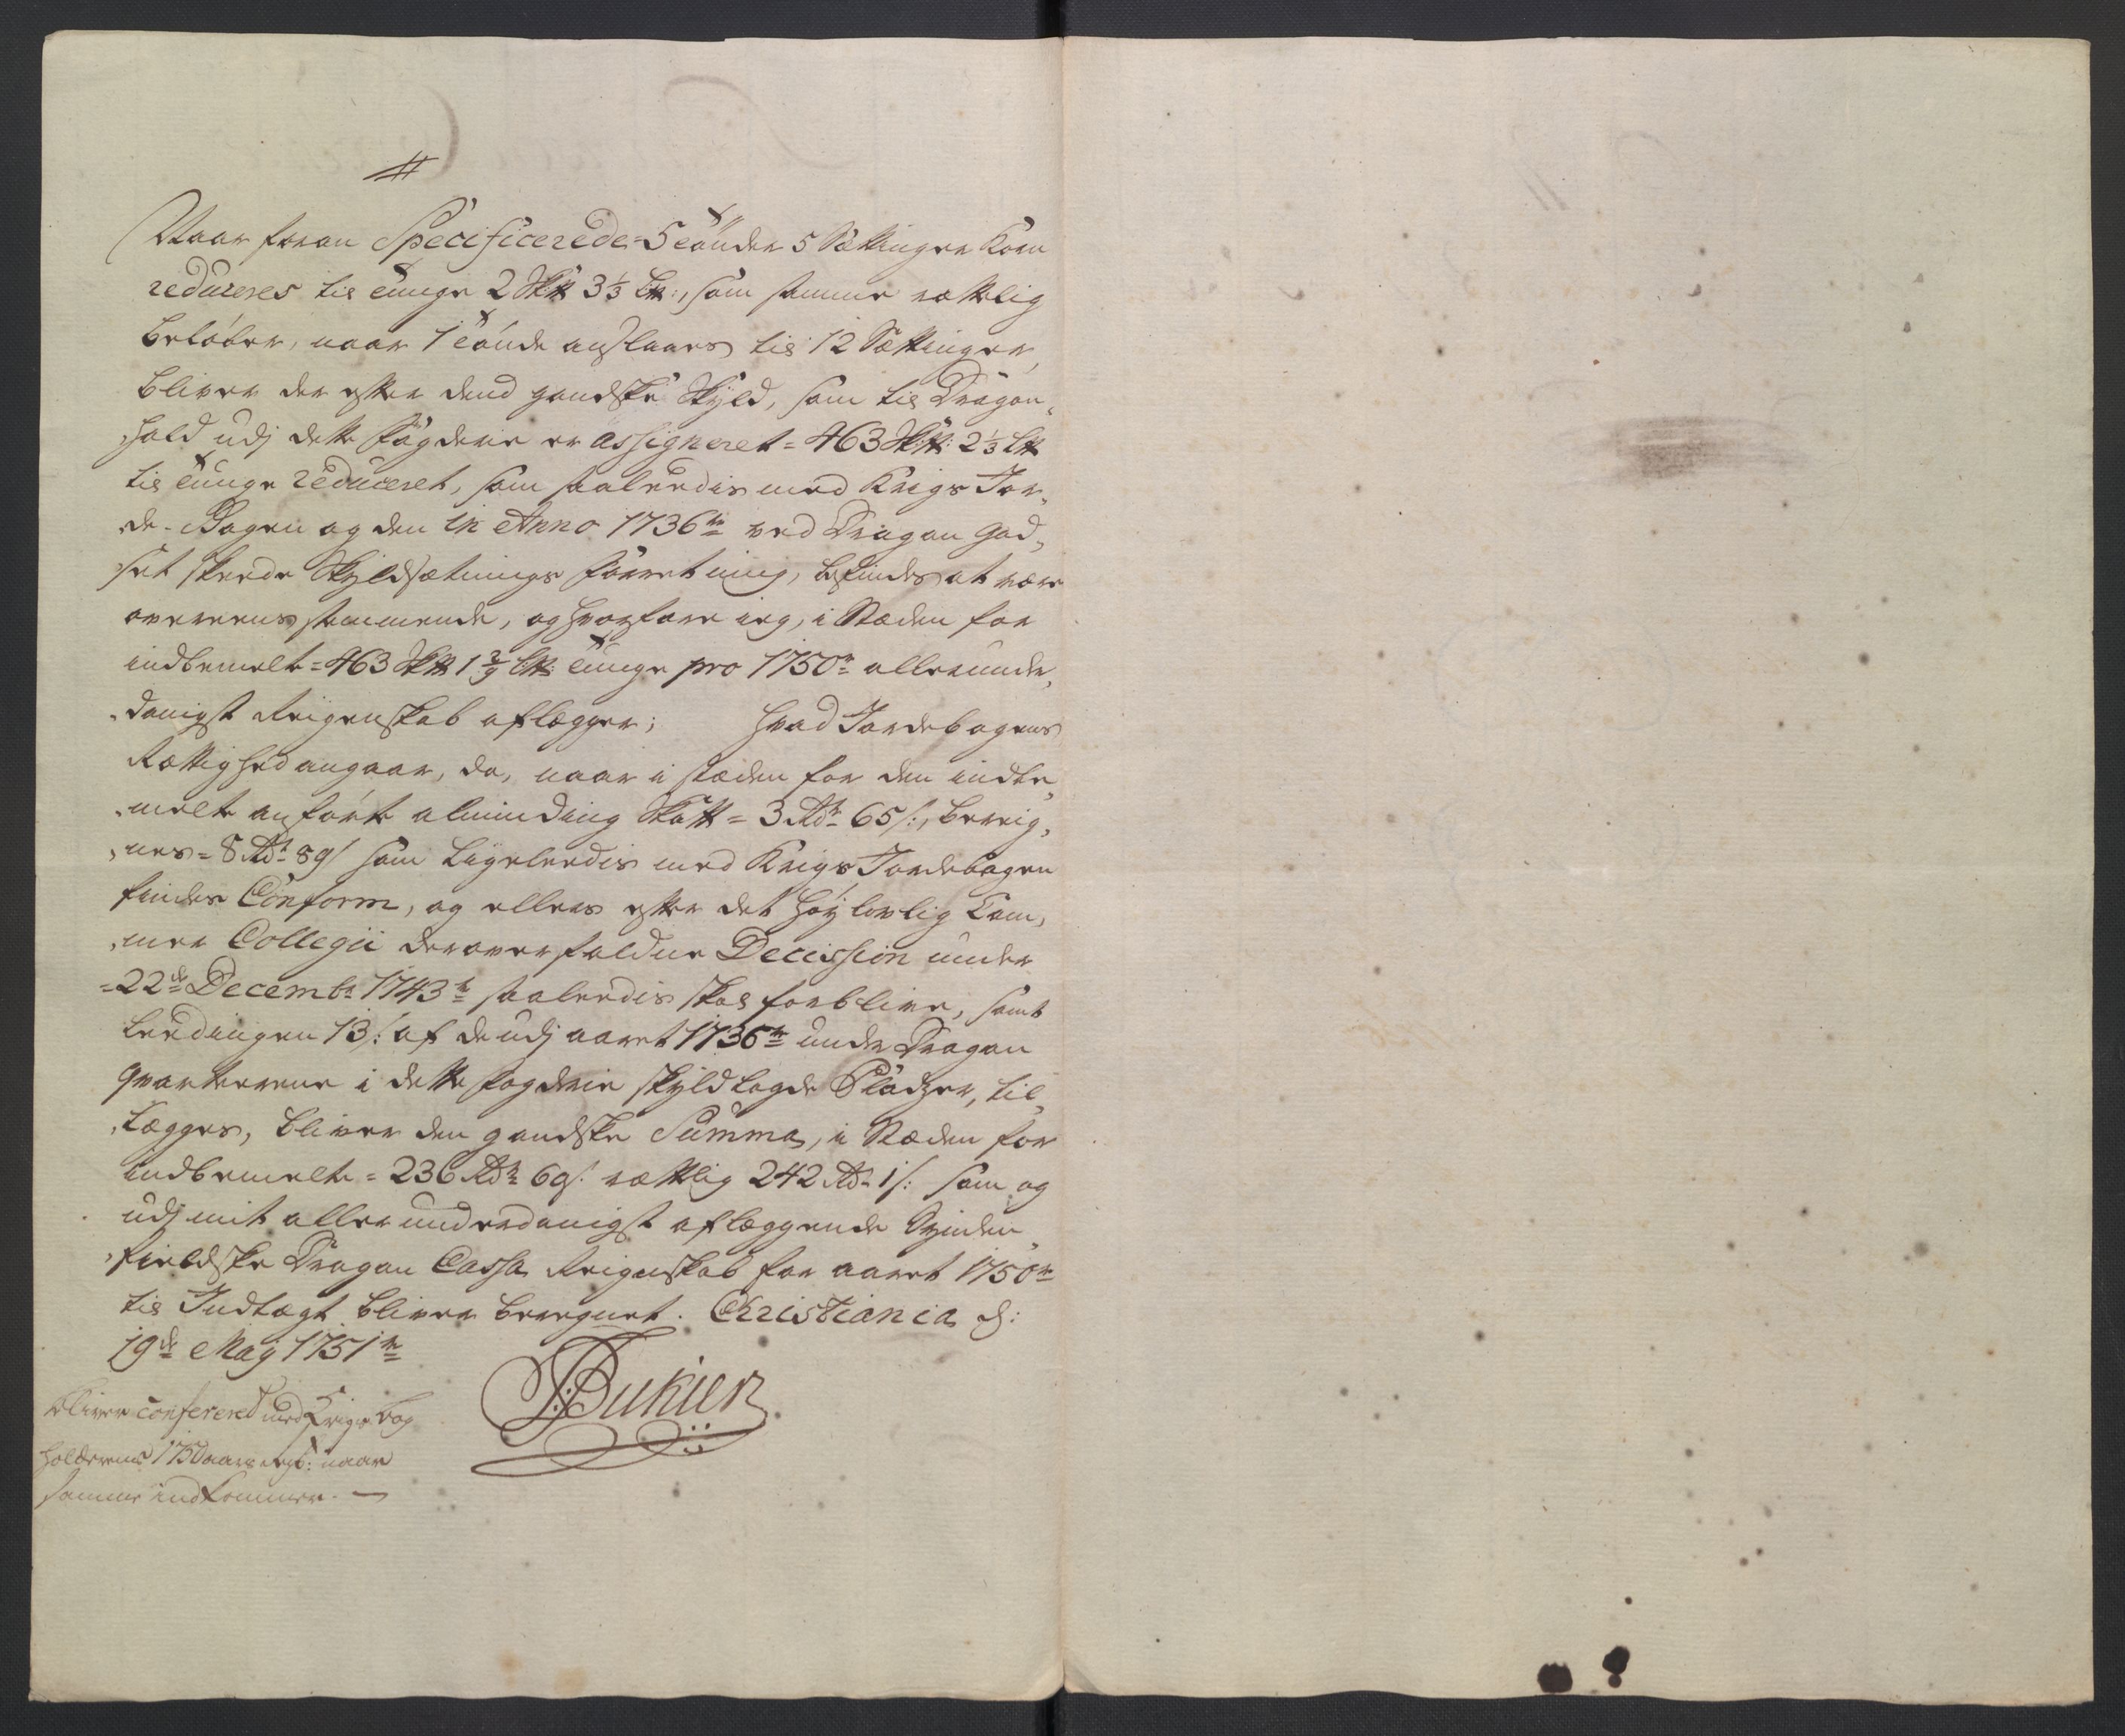 #
Naar foran Specificerede = 5 tønder 5 Sættinger Korn
reduceres til tunge 2 Skt 3⅓ Lt:, som samme rættelig
beløber, naar 1 tønde anslaaes til 12 Sættinger,
bliver der efter dend gandske Skyld, som til Dragon„
hold udj dette fogderie er assigneret = 463 Skt: 2⅓ Lt
til tunge reduceret, som saaledis med Krigs Jor„
de-Bogen og den in Anno 1736 ved Dragon god„
set skeede Skyldsætnings forretning, befindes at være
overeensstemmende, og hvorfore ieg, i Stæden for
indbemelte = 463 Skt 1 2/9 Lt: tunge pro 1750 allerunder„
„danigst Reigenskab aflægger; hvad Jordebogens
Rættighed angaar, da, naar i stæden for den indbe„
„melte anførte alminding Skatt = 3 Rd 65 s:, bereig„
„nes = 8 Rd 89 s som ligeleedis med Krigs Jordebogen
findes Conform, og ellers efter det høylovlig Cam„
„mer Collegii derover faldne Decission under
= 22de Decembr 1743 saaleedis skal forblive, samt
Leedingen 13 s: af de udj aaret 1736 under Dragon
qvarterene i dette fogderie skyldlagde Pladzer, til„
„lægges, bliver den gandske Summa, i Stæden for
indbemelte = 236 Rd 69 s: rættelig 242 Rd 1 s: som og
udj mit allerunderdanigst aflæggende Synden„
„fieldske Dragon Cassa Reigenskab for aaret 1750
til Indtægt bliver beregnet. Christiania d:
19de Maij 1751
Bukier
bliver confereret med Krigs bog
holderens 1750 aars regs: naar
samme indkommer. —